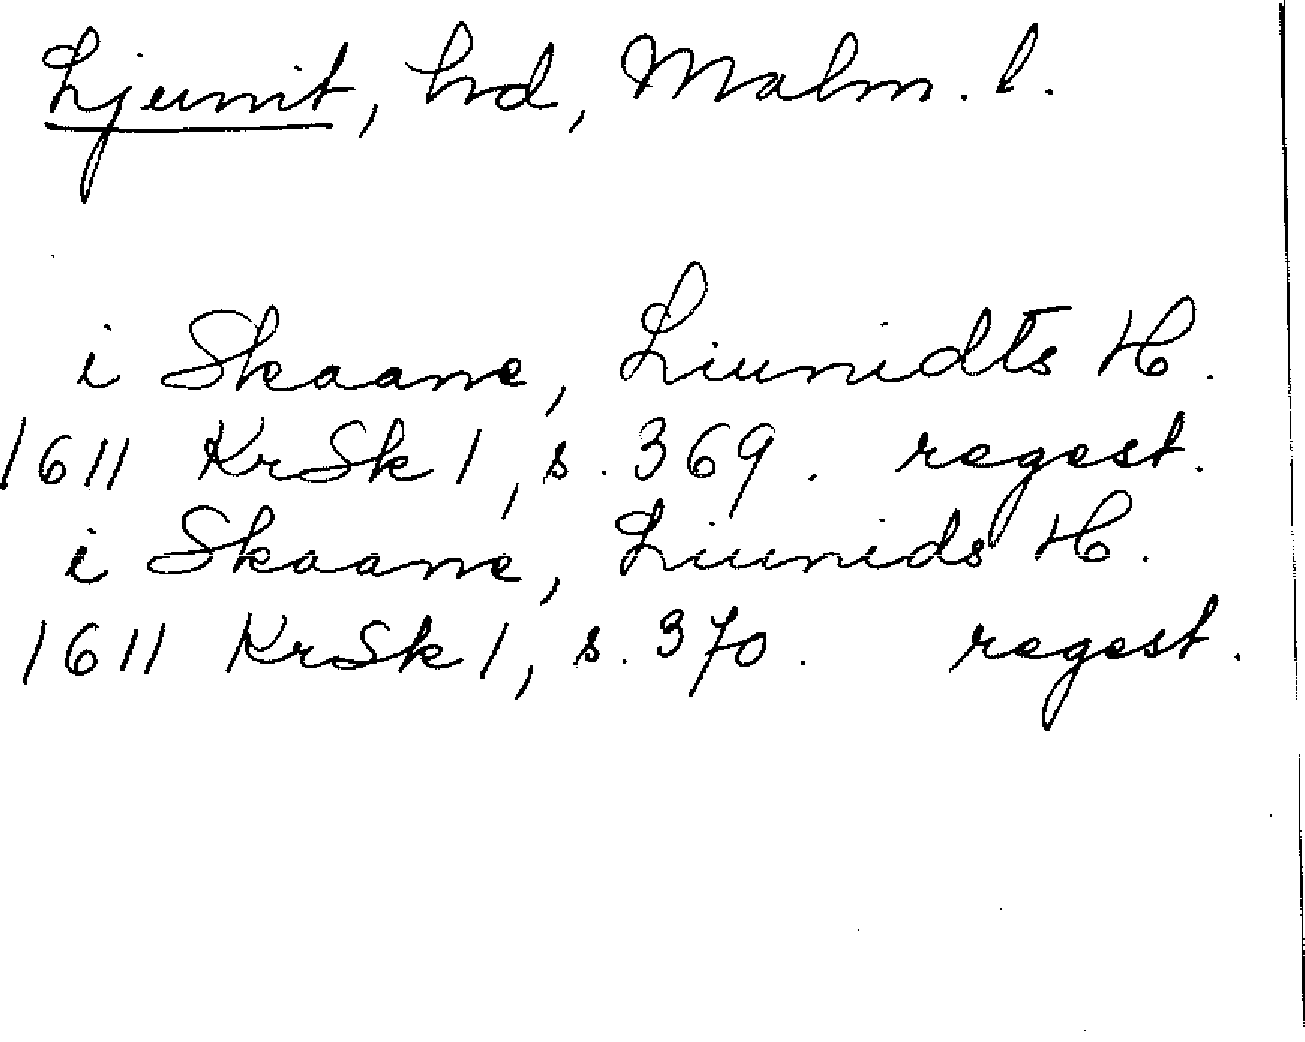 Ljunit, hd, Malm. l.
i Skaane, Liunidts H.
1611 KrSk 1, s. 369. regest.
i Skaane, Liunids H.
1611 KrSk 1, s. 370. regest.